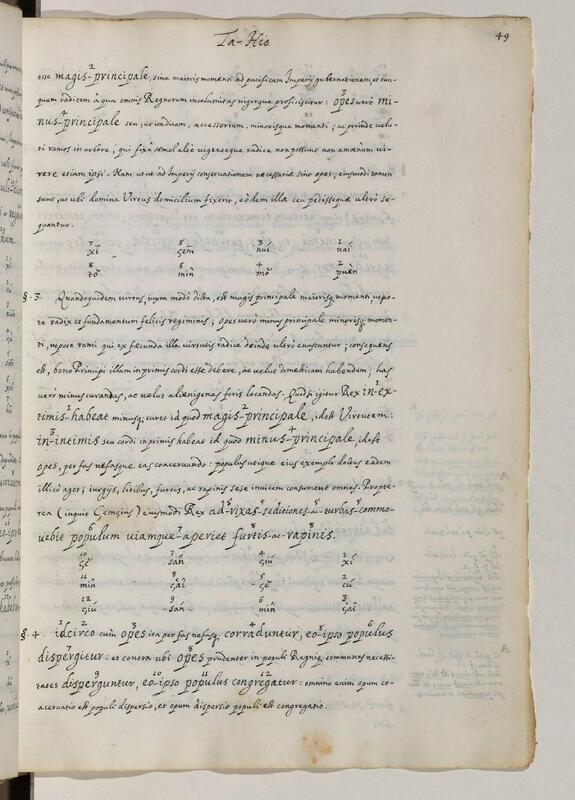 Ta-Hio
49
esse magis-principale, siue maioris momenti ad pacificam Imperij gubernationem, et tan-
quam radicem à qua omnis Regnorum incolumitas vigorque proficiscitur: opes verò mi-
nus-principale seu, ut ita dicam, accessorium, minorisque momenti; ac proinde velu-
ti ramos in arbore; qui fixâ semel aleè vigenteque radice non possunt non amænùm vi-
rere etiam ipsi. Nam ut ut ad Imperij conseruationem necessariæ sint opes, eiusmodi tamen
sunt, ut ubi domina Virtus domicilium fixerit, eòdem illæ ceu pedissequæ ultrò se-
quantur.
7 5 3 1
xi çem nui uai
8 6 4 2
tò min mò puen
§. 3. Quandoquidem virtus, iuxta modò dicta, est magis principale maiorisq; momenti, utpo-
te radix et fundamentum felicis regiminis; opes verò minus principale minorisq; momen-
ti, utpote rami qui ex fecunda illa virtutis radice deinde ultrò enascuntur; consequens
est, bono Principi illam in primis cordi esse debere, ac velut domesticam habendam; has
verò minus curandas, ac velut alienigenas foris locandas. Quod si igitur Rex in-ex-
timis-habeat minusq; curet id quod magis-principale, idest Virtutem:
in-intimis seu cordi in primis habeat id quod minus-principale, idest
opes, per fas nefasque eas coacervando: populus utique eius exemplo doctus eadem
illicò aget; iurgijs, litibus, furtis, ac rapinis sese invicem consument omnes. Propte-
rea (inquit Çemçius) eiusmodi Rex ad-rixas-seditiones-ac-turbas-commo-
vebit populum viamque-aperiet furtis-ac-rapinis.
10 7 4 1
çë san çiú xi
11 8 5 2
min çai çë cú
12 9 6 3
çiu san min çai
§. 4. idcirco cum opes ita per fas nefasq; corraduntur, eo-ipso populus
dispergitur: et contra ubi opes prudenter in populi Regniq; communes necessi-
tates disperguntur, eo-ipso populus congregatur: omnino enim opum co-
acervatio est populi dispersio, et opum dispersio populi est congregatio.